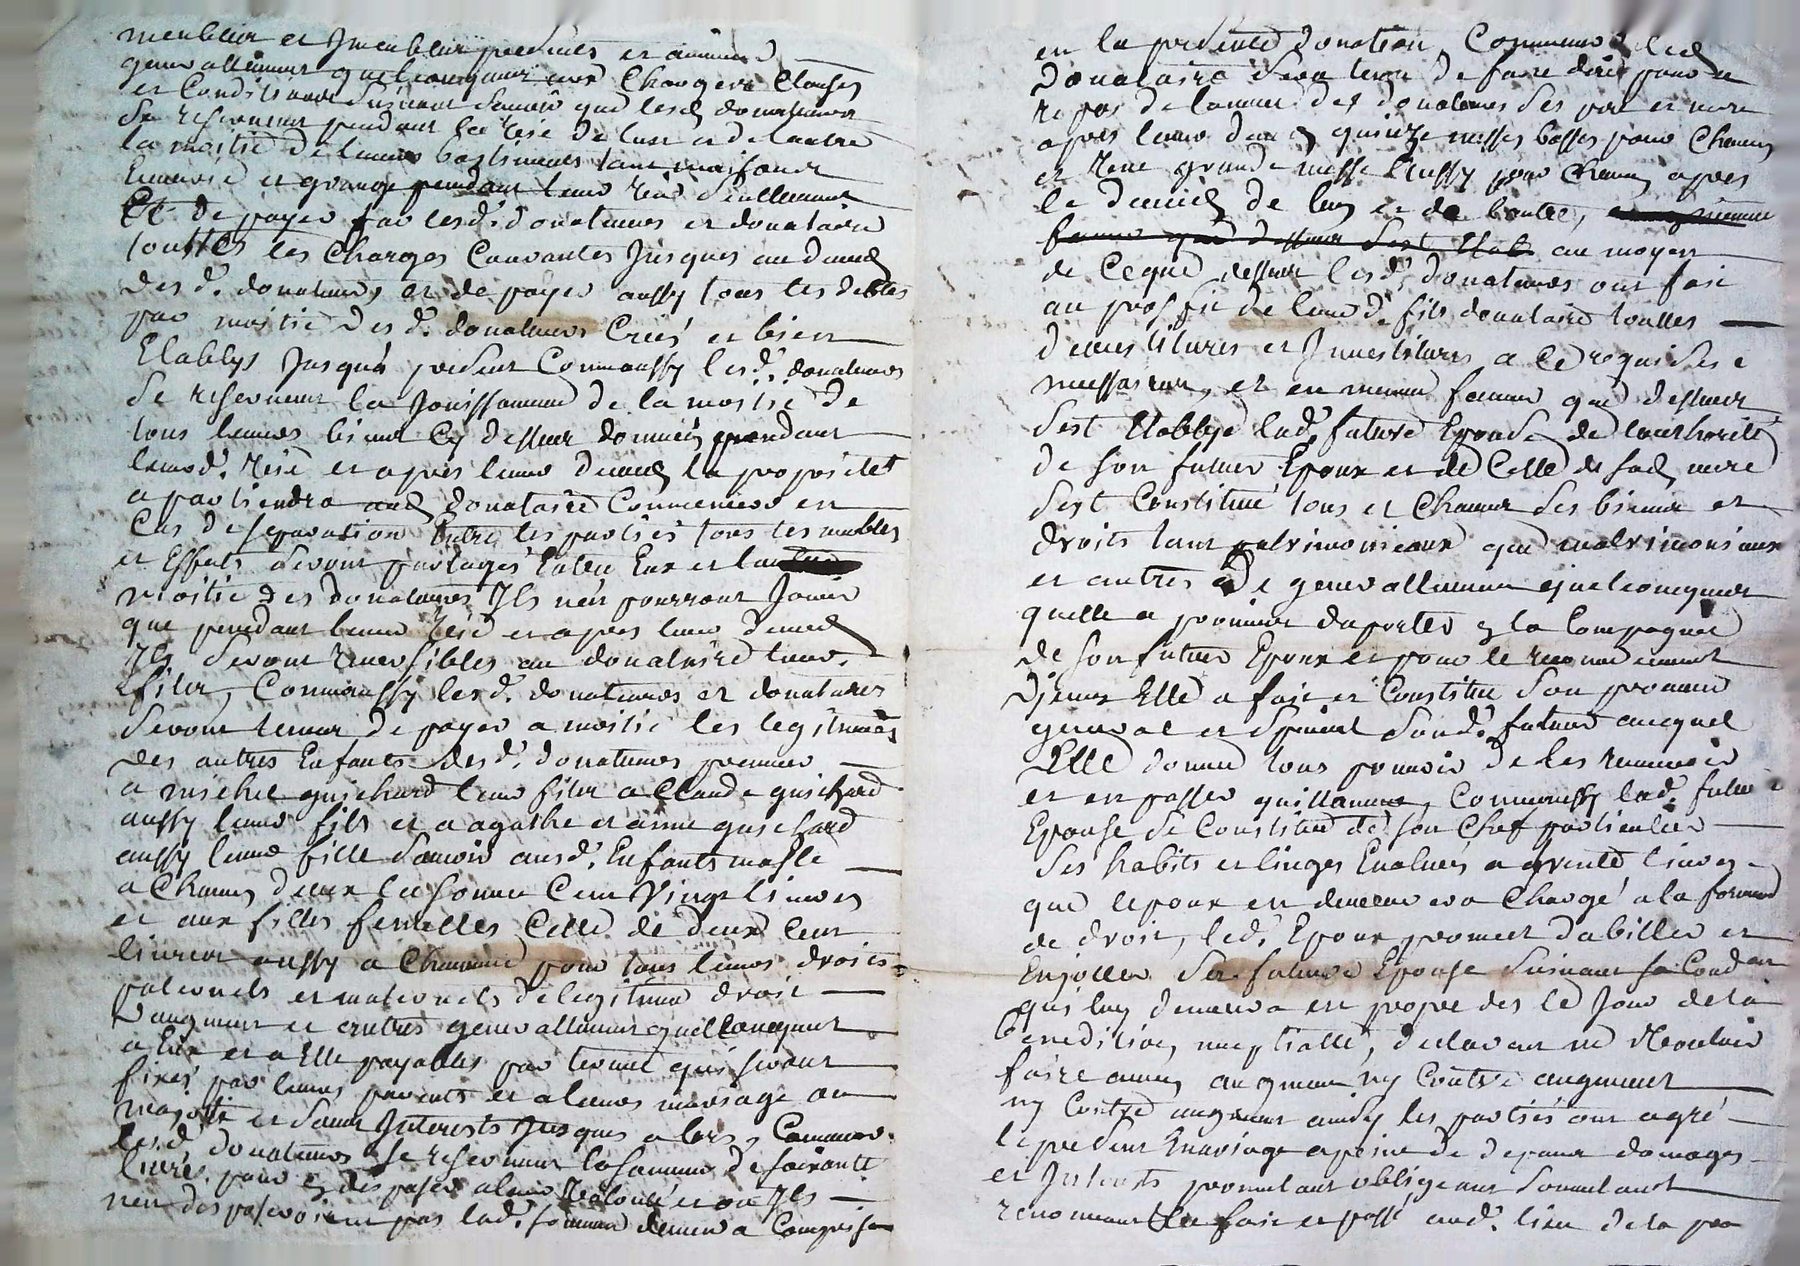 meubleur et Jmeubleur presents et avenir
generallement quelconqueur aux Charges Clauses
et Conditions suivant scavoir que lesd donateurs
se reserveur pendant leur vie de lun et de lautre
la moitié de leurs bastiments tant maisons
Ecurie et grange pendant leur vie seullement
Et de payer par lesd. donateurs et donataire
touttes les Charges Courantes Jusques au deced
des d. donateurs et de payer aussy tous les debtes
par moitié des d. donateurs Créés et bien
Etablys Jusqua present Comm aussy lesd. donateurs
se reserveur la Jouissance de la moitié de
tous leurs biens Cy dessur donnés pendant
leurd. vie et apres leur deced la proprietet
apartiendra aud donataire Convenus en
Cas de separation Entre les parties tous les meubles
et Effets seront partagés Entre Eux et la
moitié des donateurs Jls nen pourront Jouir
que pendant leur vie et apres leur deced
Jls seront reversibles au donataire leur
filur, Comm aussy lesd. donateurs et donataires
seront tenur de payer a moitié les legitimes
des autres Enfants desd. donateurs premier
a michel guichard leur filur a Claude guichard
aussy leur fils et a agathe et anne guichard
aussy leur fille scavoir ausd. Enfants masle
a Chacun deux la somme Cent Vingt livres
et aux filles femelles Celle de deux Cent
livres aussy a Chacune pour tous leurs droits
paternels et maternels de legitime droit
daugment et autres generallement quelconqueur
a Eux et a Elle payables par termes qui seront
fixés par leurs parents et a leurs mariage ou
majorité et sans Jnterests Jusques a lors, Comme
lesd. donateurs se reserveur la somme de soixante
livres pour en disposer a leur Volonté et ou Jls
nen disposeroient pas lad. somme demeura Comprise
en la presente donation, Comme led
donataire sera tenu de faire dire pour le
repos de lame des donateurs ses pere et mere
apres leur deced quinze messes basses pour Chacun
et Vene grande messe aussy pour Chacun apres
le deceid de lun et de lautre,
au moyen
de Ceque dessur lesd. donateurs ont fait
au proffit de leurd. fils donataire touttes
devestitures et Jnvestitures a Ce requises
necessaires, et en meme forme que dessur
sest Etablye lad. future Epouse de lauthorité
de son futur Epoux et de Celle de sad mere
sest Constitué tous et Chacun ses biens et
droits tant patrimoniaux que matrimoniaux
et autres De generallement quelconqueur
quelle a promis daporter en la Compagnie
de son futur Epoux et pour le recouvrement
Djceux Elle a fait et Constitué son procureur
general et special sond. futur auquel
Elle donne tous pouvoir de les recevoir
et en passer quittances, Comm aussy lad. future
Epouse se Constitue de son Chef particulier
ses habits et linges Evalués a trente livres
que lepoux en demeurera Chargé a la forme
de droit, led. Epoux promet dabiller et
Enjoller sa future Epouse suivant sa Condon
qui luy demeurera en propre des le Jour de la
benediction nuptialle, declarant ne Vouloir
faire aucun augment ny Contre augment
ny Contre augment ainsy les parties ont agréé
le present mariage a peine de depens domages
et Jnterests promettant obligeant soumettant
renonceant &c fait et passé aud. lieu de la par